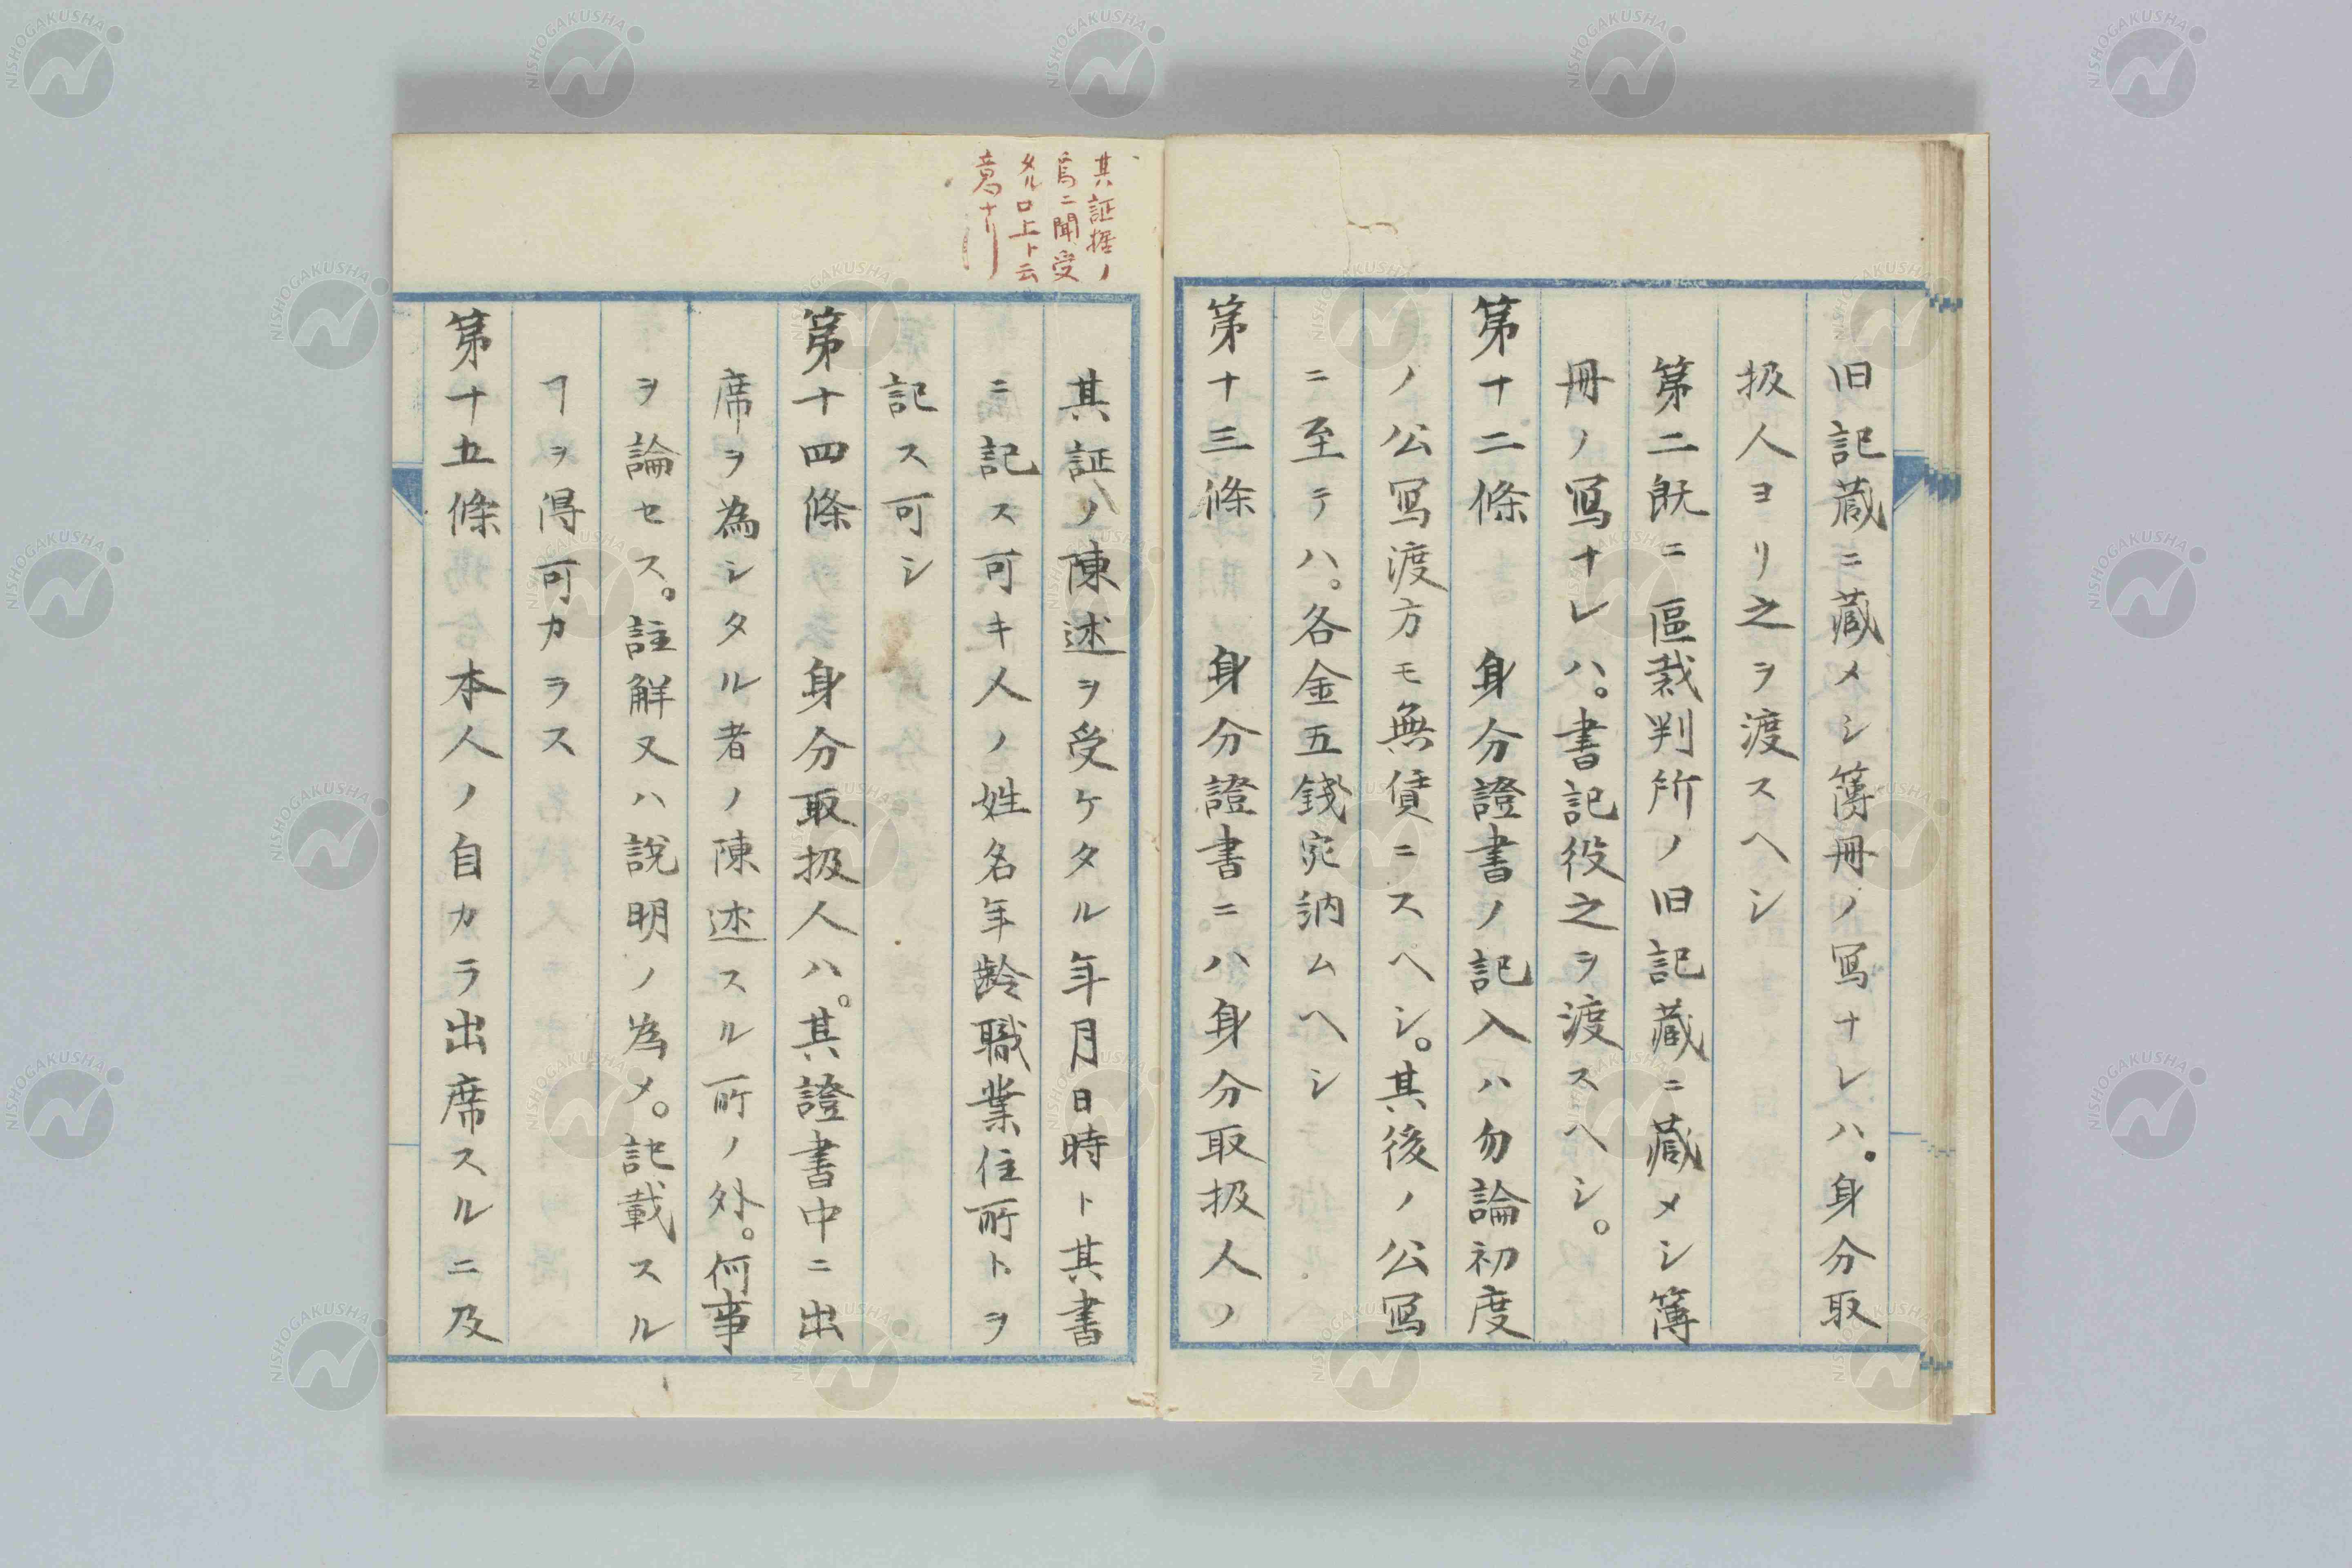 旧記蔵ニ蔵メシ簿冊ノ写ナレハ。身分取
扱人ヨリ之ヲ渡スヘシ
第二既ニ區裁判所ノ旧記蔵ニ蔵メシ簿
冊ノ写ナレハ。書記役之ヲ渡スヘシ。
第十二條 身分證書ノ記入ハ勿論初度
ノ公写渡方モ無賃ニスヘシ。其後ノ公写
ニ至テハ。各金五錢宛納ムヘシ
第十三條 身分證書ニハ身分取扱人ノ
其証据ノ
為ニ聞受
タル口上ト云
意ナリ
其証ノ陳述ヲ受ケタル年月日時ト其書
ニ記ス可キ人ノ姓名年齢職業住所トヲ
記ス可シ
第十四條 身分取扱人ハ。其證書中ニ出
席ヲ為シタル者ノ陳述スル所ノ外。何事
ヲ論セス。註解又ハ說明ノ為メ。記載スル
ヿヲ得可カラス
第十五條 本人ノ自カラ出席スルニ及
NISHOGAKUSHA